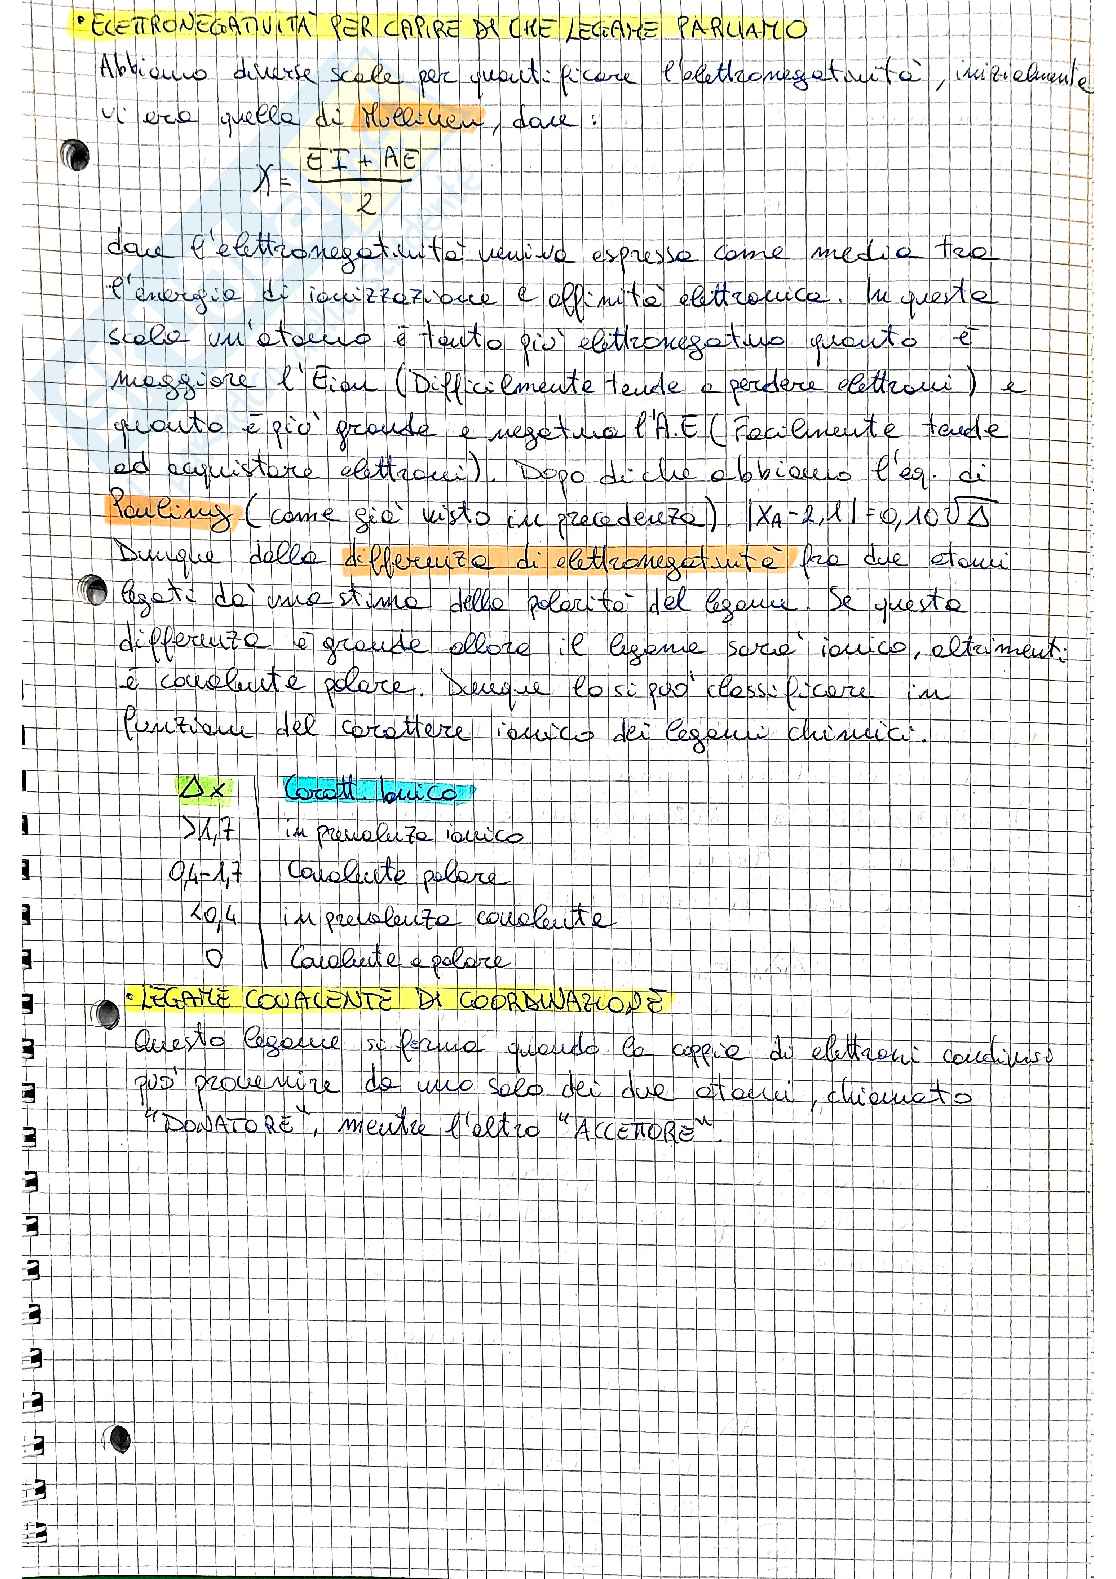 • ELETTRONEGATIVITÀ PER CAPIRE DI CHE LEGAME PARLIAMO
Abbiamo diverse scale per quantificare l'elettronegatività, inizialmente
vi era quella di Mulliken, dove:
X = EI + AE / 2
dove l'elettronegatività veniva espressa come media tra
l'energia di ionizzazione e affinità elettronica. In questa
scala un'atomo è tanto più elettronegativo quanto è
maggiore l'Eion (Difficilmente tende a perdere elettroni) e
quanto è più grande e negativa l'A.E (Facilmente tende
ad acquistare elettroni). Dopo di che abbiamo l'eq. di
Pauling (come già visto in precedenza). |XA-2,1| = 0,10√Δ
Dunque dalla differenza di elettronegatività fra due atomi
legati dà una stima della polarità del legame. Se questa
differenza è grande allora il legame sarà ionico, altrimenti
è covalente polare. Dunque lo si può classificare in
funzione del carattere ionico dei legami chimici.
ΔX Caratt. Ionico
>1,7 in prevalenza ionico
0,4-1,7 Covalente polare
<0,4 in prevalenza covalente
0 Covalente apolare
• LEGAME COVALENTE DI COORDINAZIONE
Questo legame si forma quando la coppia di elettroni condivisi
può provenire da uno solo dei due atomi, chiamato
"DONATORE", mentre l'altro "ACCETTORE".